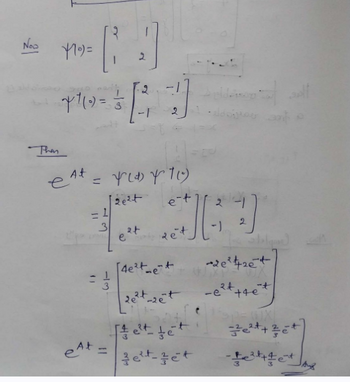 Now ψ(0) = [2 1
1 2]
ψ⁻¹(0) = 1/3 [2 -1
-1 2]
Then
e^{At} = ψ(t) ψ⁻¹(0)
= 1/3 [2e^{2t} e^{-t}
e^{2t} 2e^{-t}] [2 -1
-1 2]
= 1/3 [4e^{2t}-e^{-t} -2e^{2t}+2e^{-t}
2e^{2t}-2e^{-t} -e^{2t}+4e^{-t}]
e^{At} = [4/3 e^{2t} - 1/3 e^{-t} -2/3 e^{2t} + 2/3 e^{-t}
2/3 e^{2t} - 2/3 e^{-t} -1/3 e^{2t} + 4/3 e^{-t}]